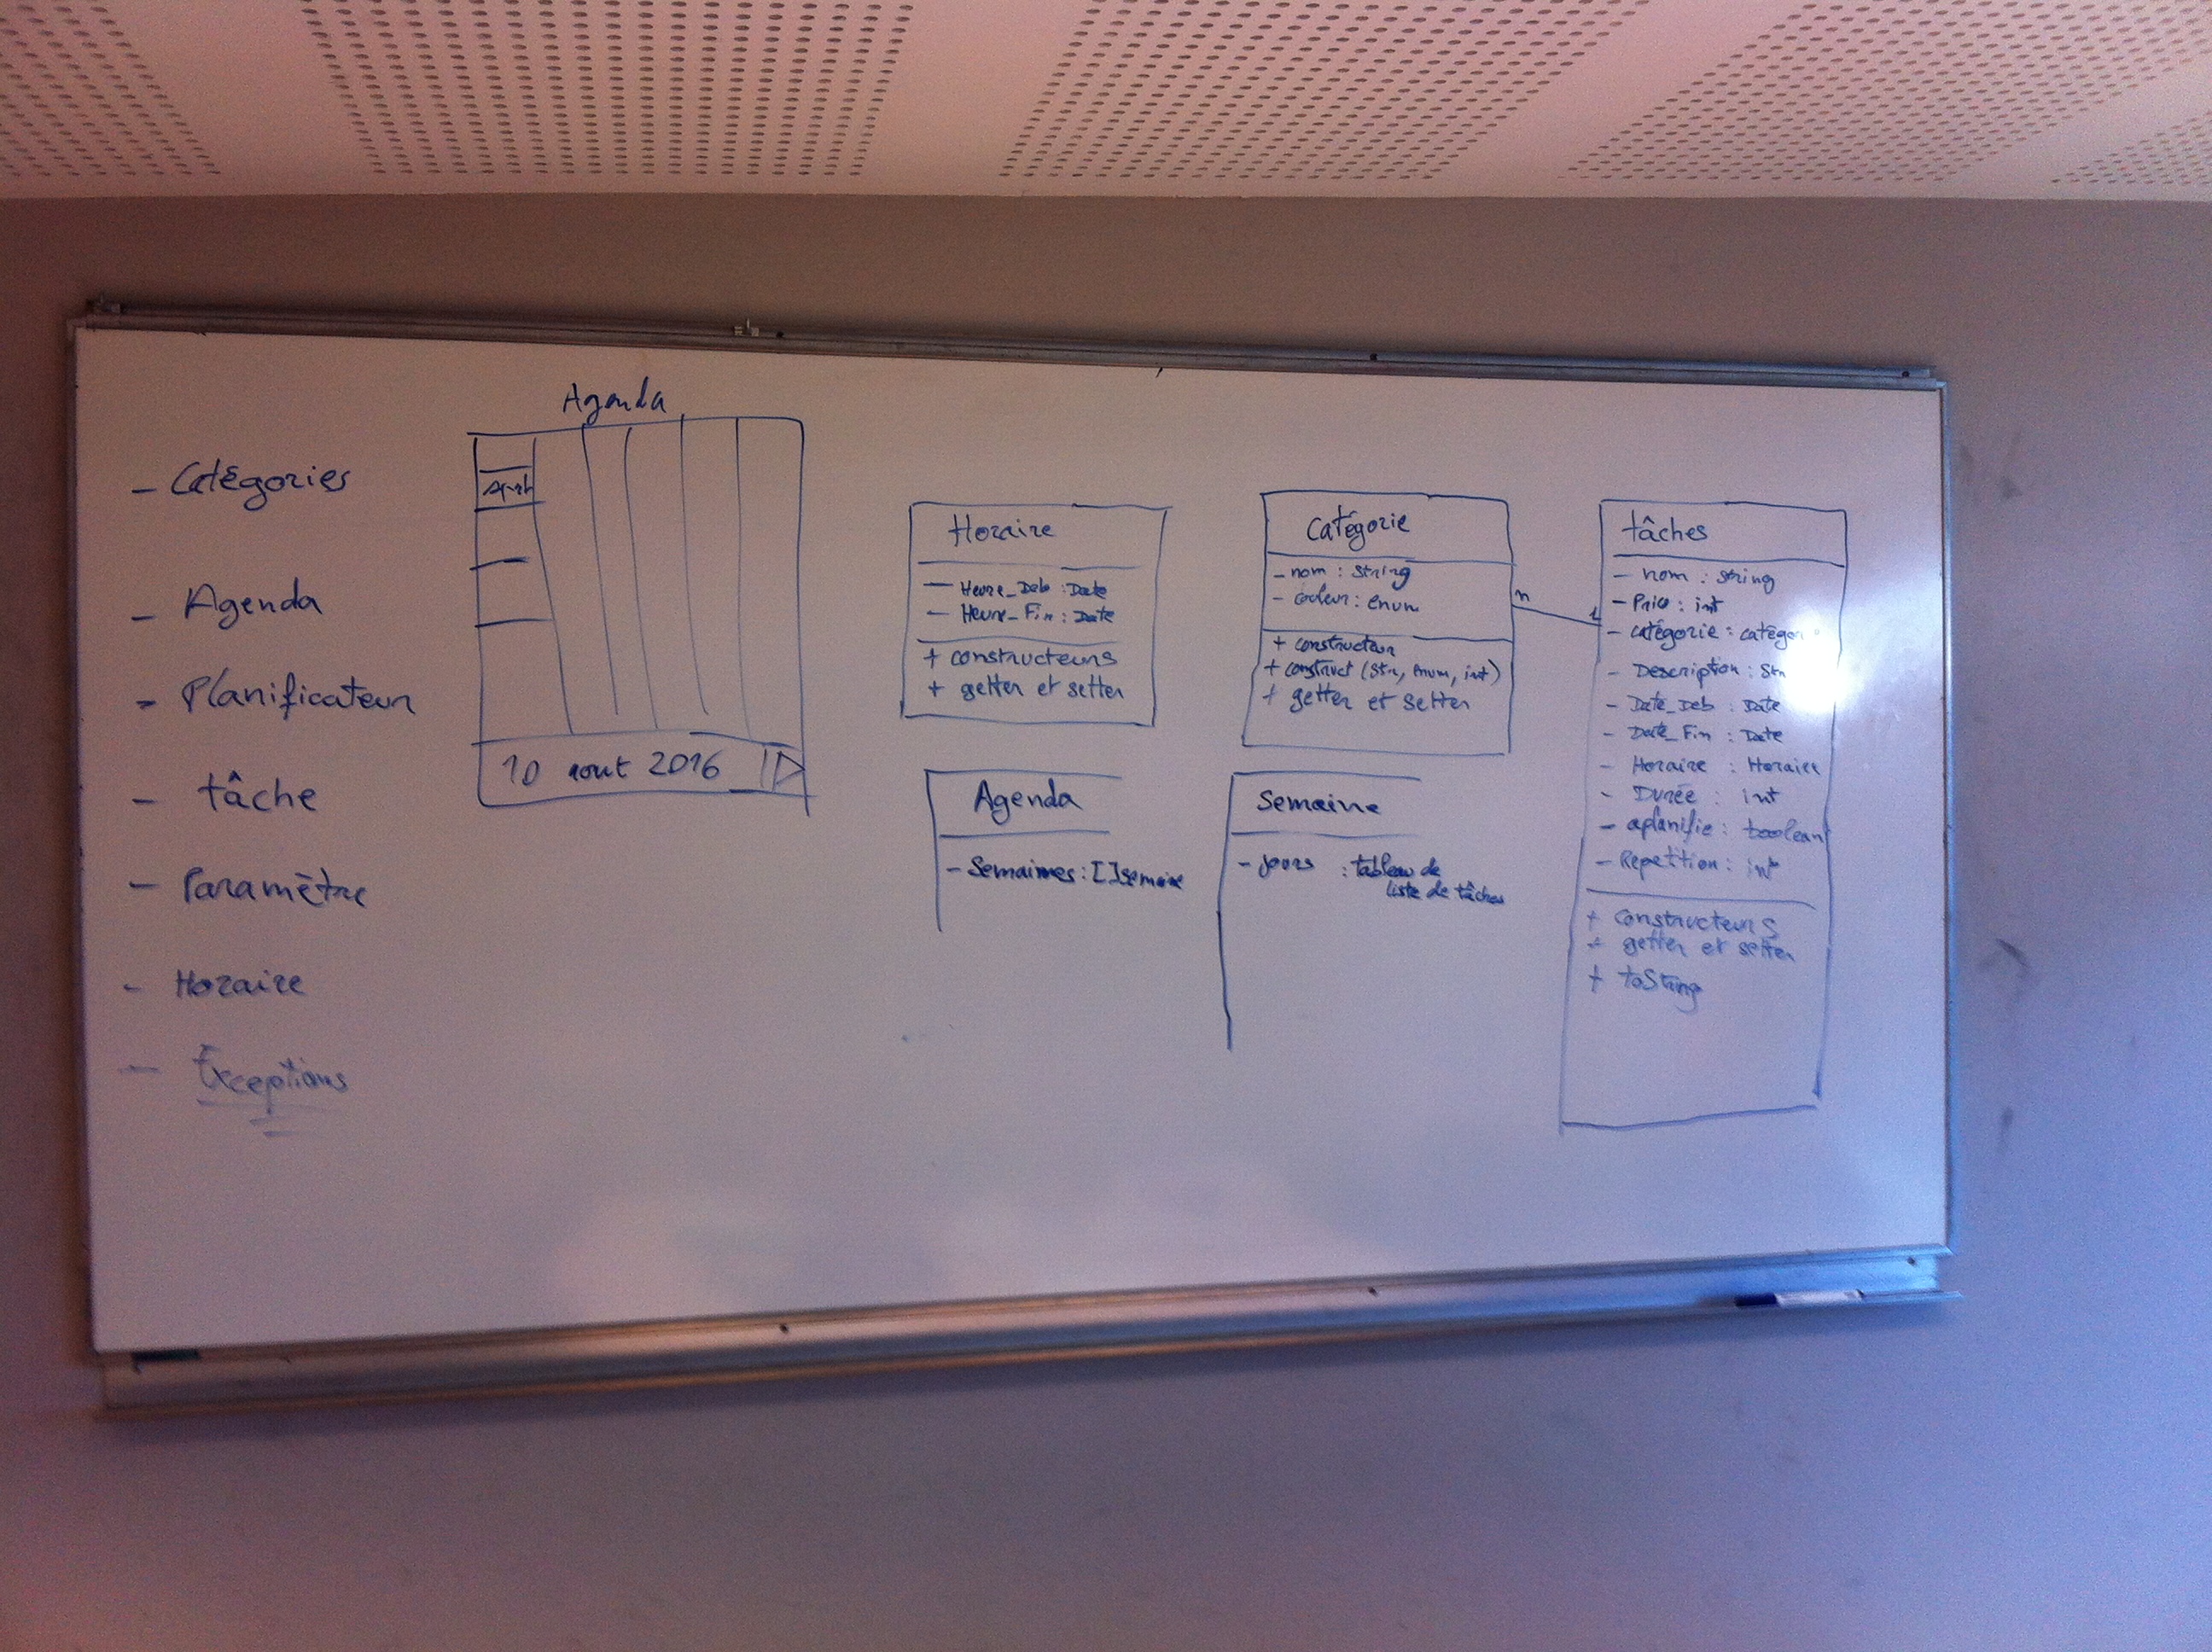 - Catégories
- Agenda
- Planificateur
- tâche
- Paramètre
- Horaire
- Exceptions
Agenda
10 aout 2016
Horaire
- Heure_Deb : Date
- Heure_Fin : Date
+ constructeurs
+ getter et setter
Catégorie
- nom : String
- couleur : enum
+ constructeur
+ construct (Str, Enum, int)
+ getter et setter
n 1
tâches
- nom : string
- Prio : int
- catégorie : catégo
- Description : Str
- Date_Deb : Date
- Date_Fin : Date
- Horaire : Horaire
- Durée : int
- aplanifie : boolean
- Repetition : int
+ constructeurs
+ getter et setter
+ toString
Agenda
- Semaines : [] semaine
Semaine
- jours : tableau de
liste de tâches